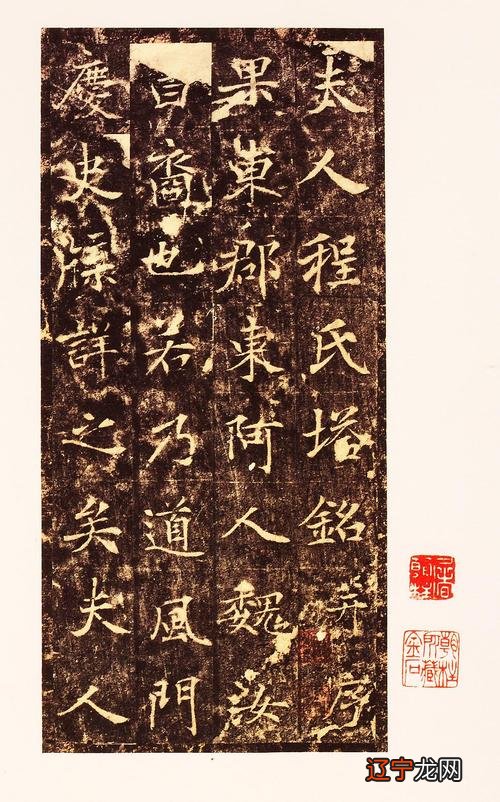 夫人程氏塔銘并序
果東郡東阿人魏汝
裔也若乃道風門
慶史牒詳之矣夫人
辽宁龙网